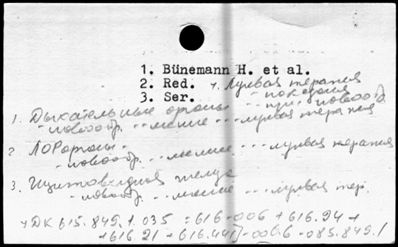 1. Bünemann H. et al.
2. Red. + Лучевая терапия
3. Ser. показания
1. Дыхательные органы .. при .. новообр.
.. новообр. .. лечение ... лучевая терапия
2 ЛОРорганы.
.. новообр. .. лечение ... лучевая терапия
3. Щитовидная железа
.. новообр. .. лечение ... лучевая тер.
УДК 615.849.1.035 : 616-006 + 616.24 +
+ 616.21 + 616.441]-006.6-085.849.1